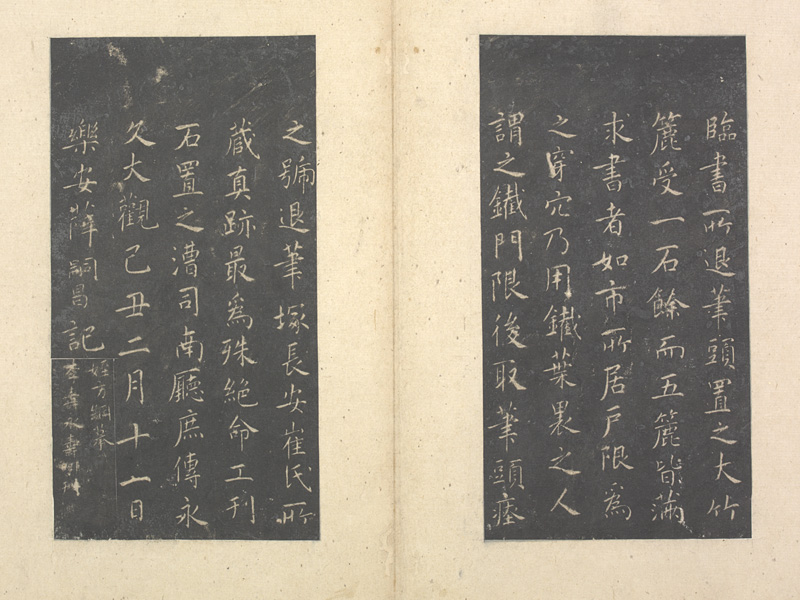 臨書所退筆頭置之大竹
簏受一石餘而五簏皆滿
求書者如市所居戸限爲
之穿穴乃用鐵葉裹之人
謂之鐵門限後取筆頭瘞
之號退筆塚長安崔氏所
蔵真跡最爲殊絶命工刊
石置之漕司南廳庶傳永
久大觀己丑二月十一日
樂安薛嗣昌記
姪方綱摹
李壽永壽明刊